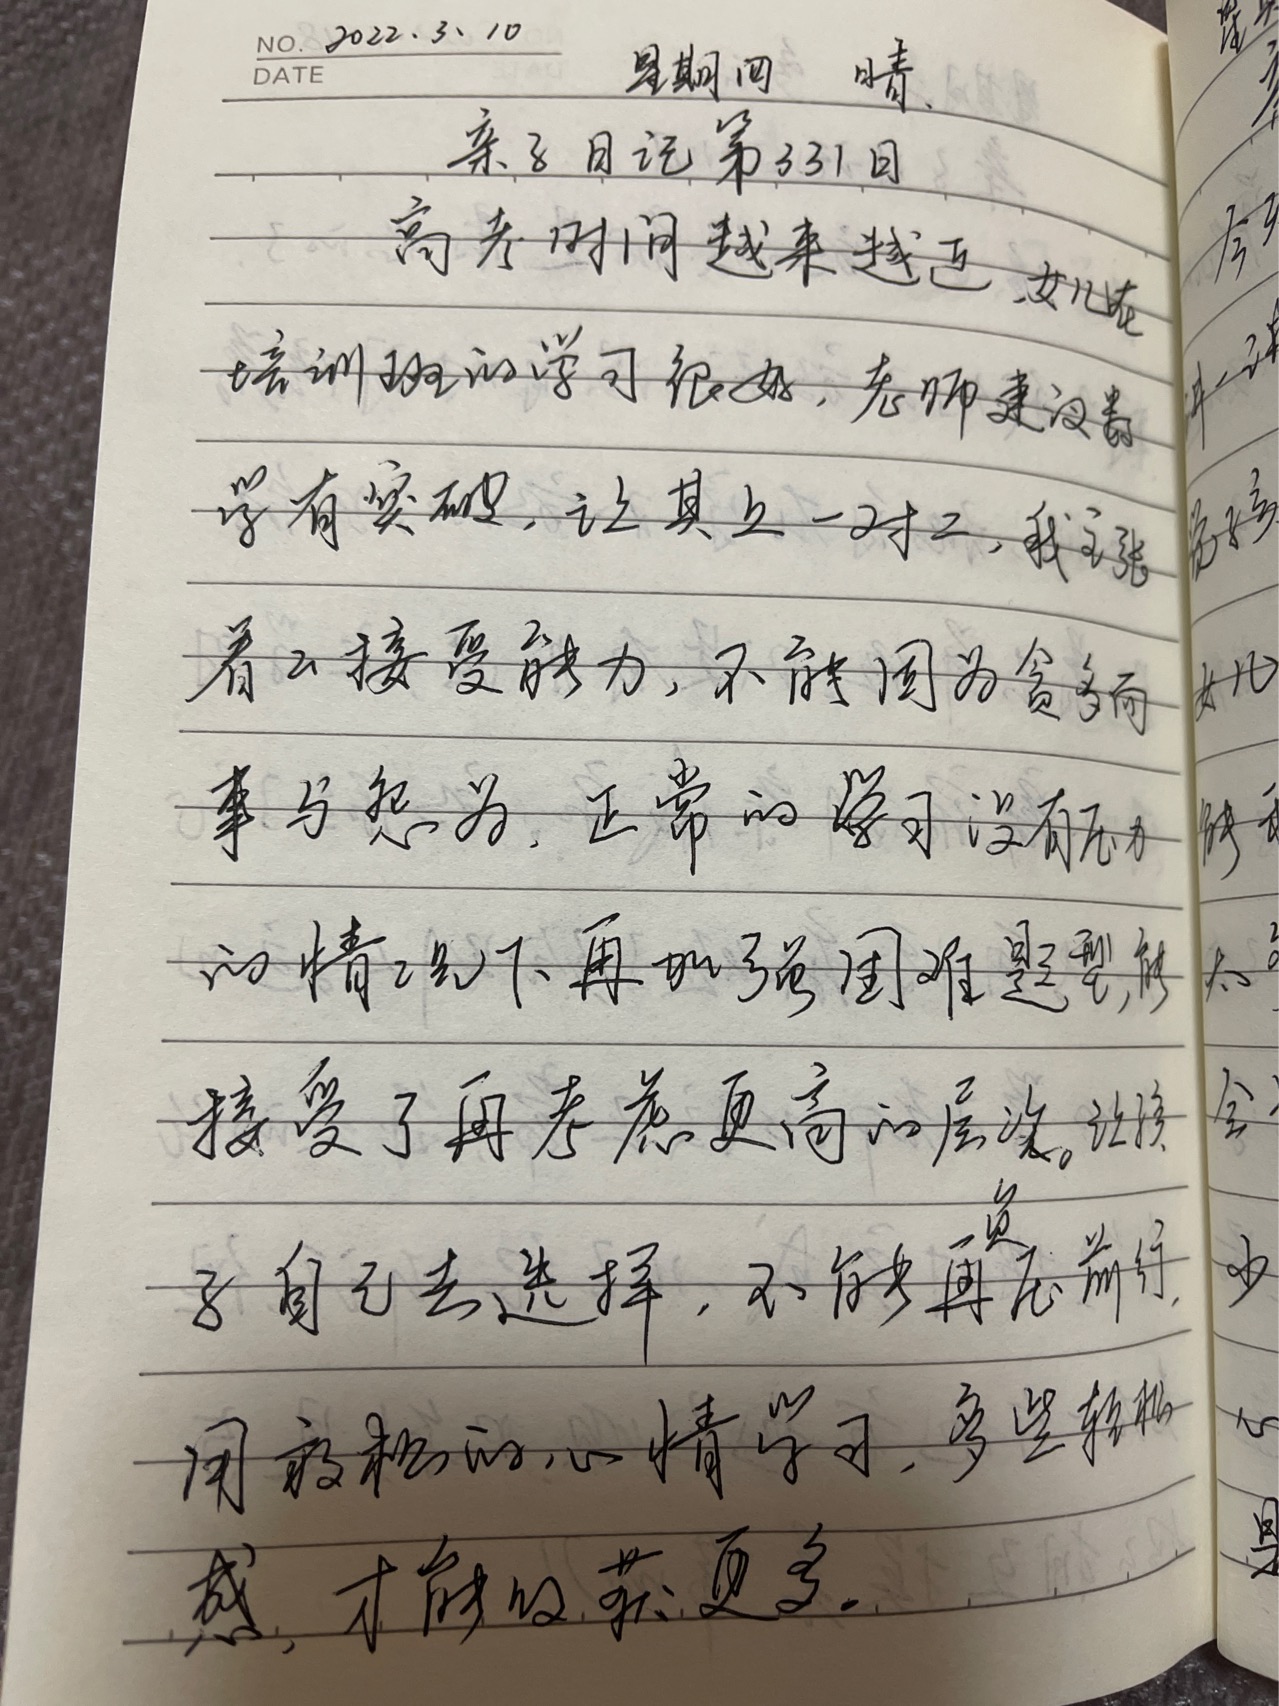 NO. 2022.3.10
DATE
星期四 晴.
亲子日记第331日
高考时间越来越近,女儿在
培训班的学习很好,老师建议数
学有突破,让其上一对二,我主张
看么接受能力,不能因为贪多而
事与怨为,正常的学习没有压力
的情况下再加强困难题型,能
接受了再考虑更高的层次。让孩
子自己去选择,不能再负压前行,
用放松的心情学习,多些轻松
感,才能收获更多.
今天
女儿
能
太
会
少
心
是